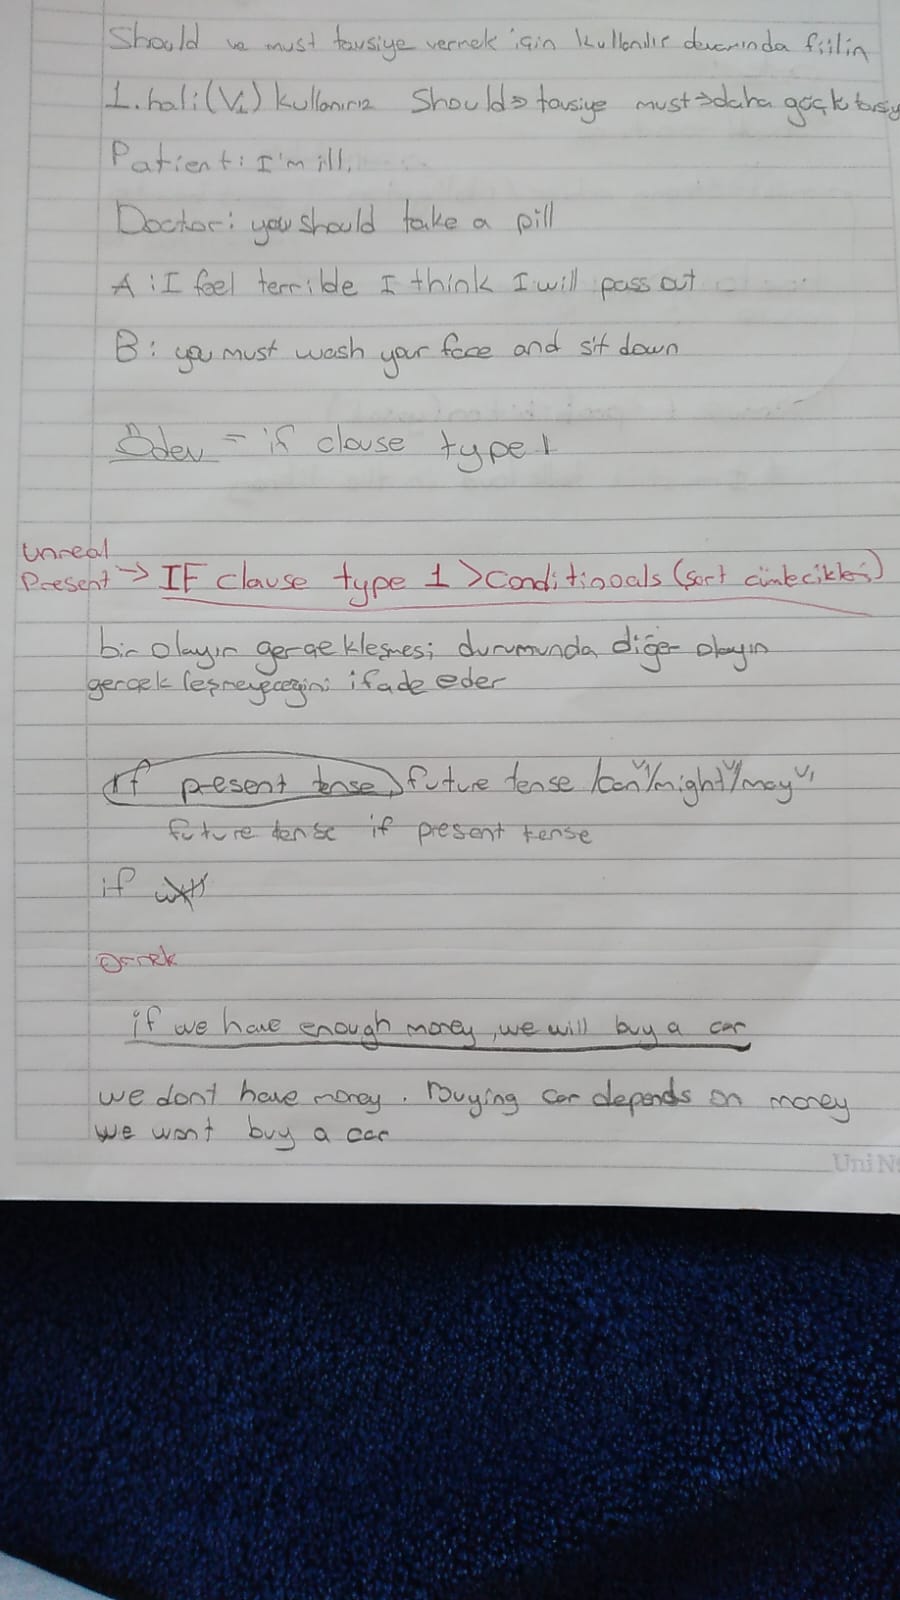 Should ve must tavsiye vermek için kullanılır devamında fiilin
1. hali (V1) kullanırız Should⇒tavsiye must⇒daha güçlü
Patient: I'm ill.
Doctor: you should take a pill
A : I feel terrible I think I will pass out
B : you must wash your face and sit down
Ödev = if clause type 1
unreal
Present → IF clause type 1 > Conditionals (şart cümlecikleri)
bir olayın gerçekleşmesi durumunda diğer olayın
gerçekleşmeyeceğini ifade eder
If present tense, future tense /can V1/might V1/may V1
future tense if present tense
if
örnek
if we have enough money, we will buy a car
we dont have money. Buying car depends on money
we wont buy a car
UniN